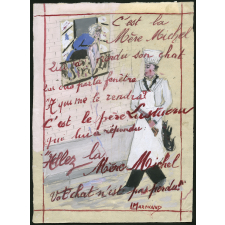 C'est la
Mère Michel
Qui a perdu son chat
Qui crie par la fenêtre
A qui me le rendra
C'est le père Lustucru
qui lui a répondu
Allez la
Mère Michel
Vot' chat n'est pas perdu
MARCHAND